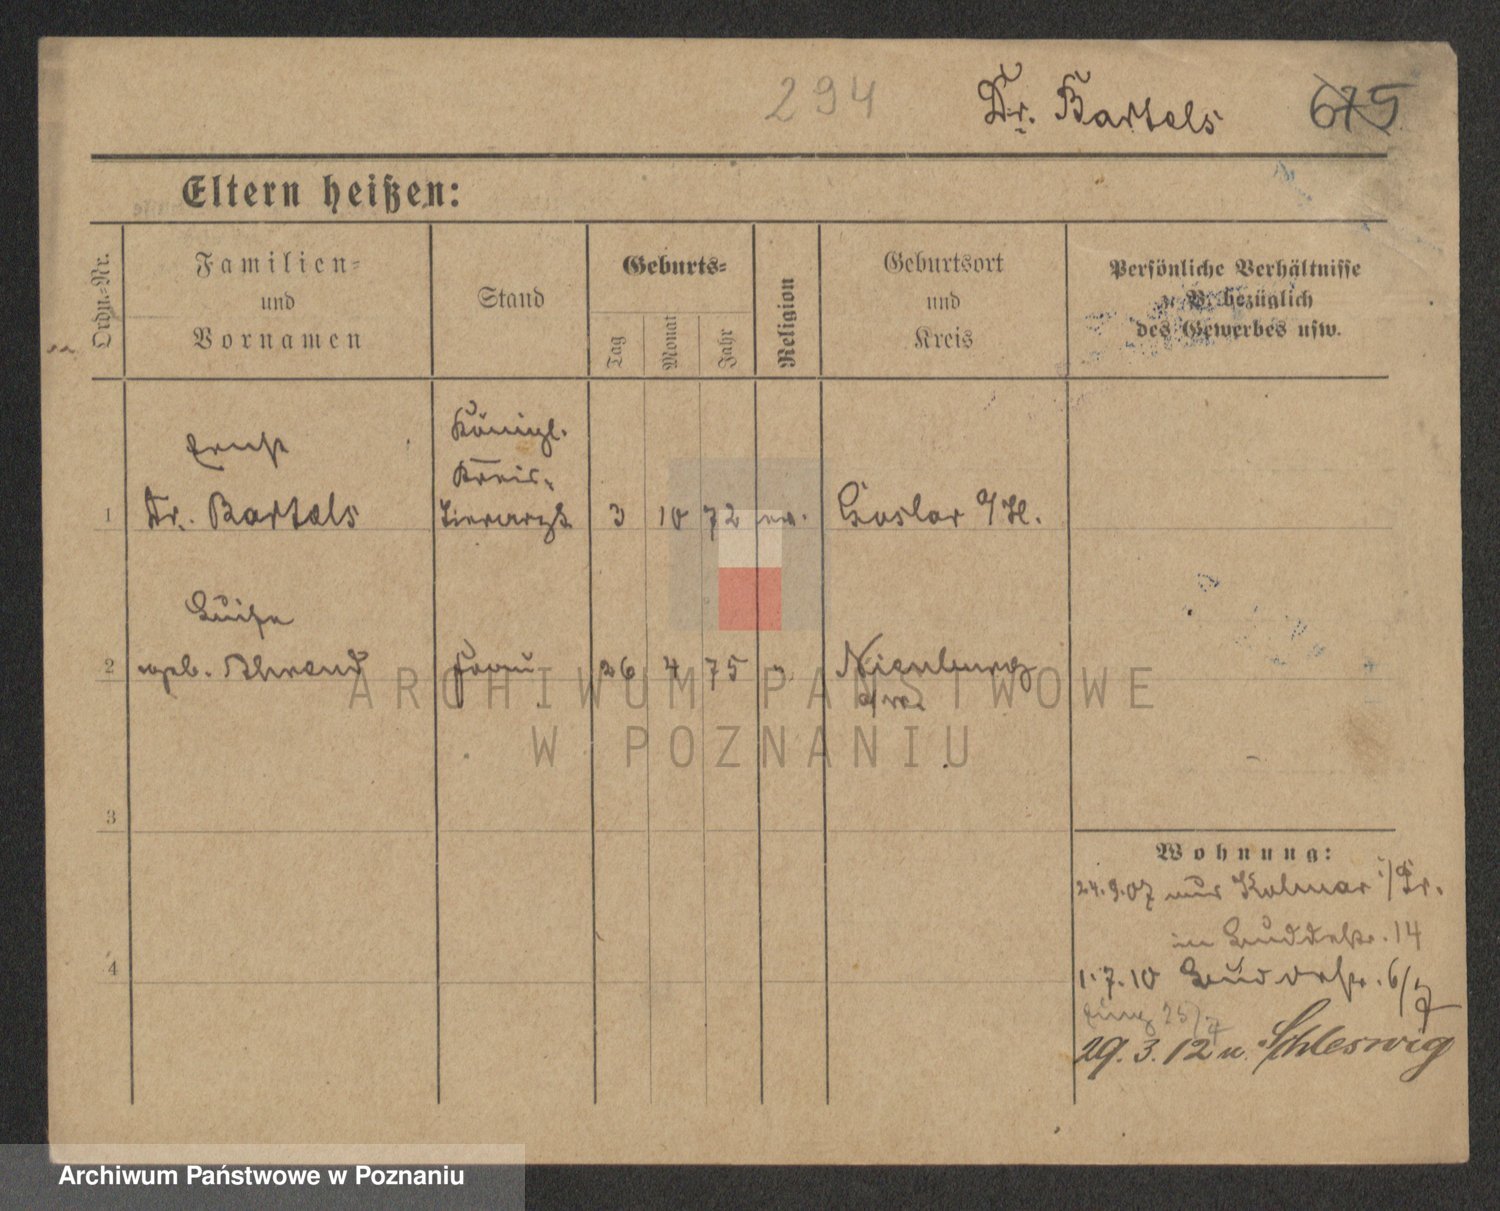 294 Dr. Bartels 675
Eltern heißen:
Ordn.-Nr.
Familien-
und
Vornamen
Stand
Geburts-
Tag
Monat
Jahr
Religion
Geburtsort
und
Kreis
Persönliche Verhältnisse
z. B. bezüglich
des Gewerbes usw.
Ernst
Königl.
Kreis-
1 Dr. Bartels Tierarzt 3 10 72 ev. Goslar a/H.
Luise
2 geb. Ahrend Frau 26 4 75 " Nienburg
a/W.
3
4
Wohnung:
24.9.07 aus Kolmar i/Pr.
in 14
1.7.10 6/7
25/7
29.3.12 n. Schleswig
ARCHIWUM PAŃSTWOWE
W POZNANIU
Archiwum Państwowe w Poznaniu